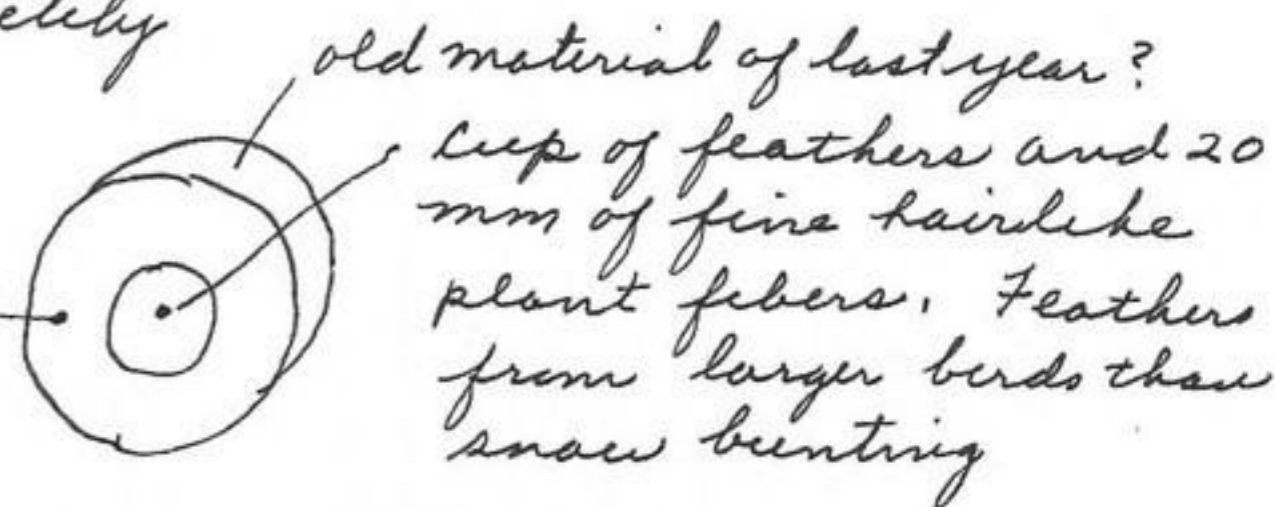 old material of last year?
Cup of feathers and 20
mm of fine hairlike
plant fibers. Feathers
from larger birds than
snow bunting